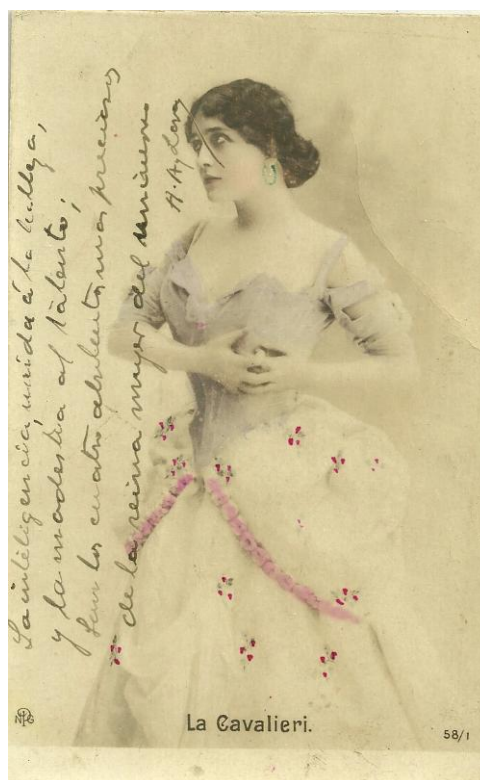 La inteligencia, unida á la belleza,
y la modestia al talento;
Son los cuatro más preciosos
de la reina mujer del universo
La Cavalieri.
NPG
58/1